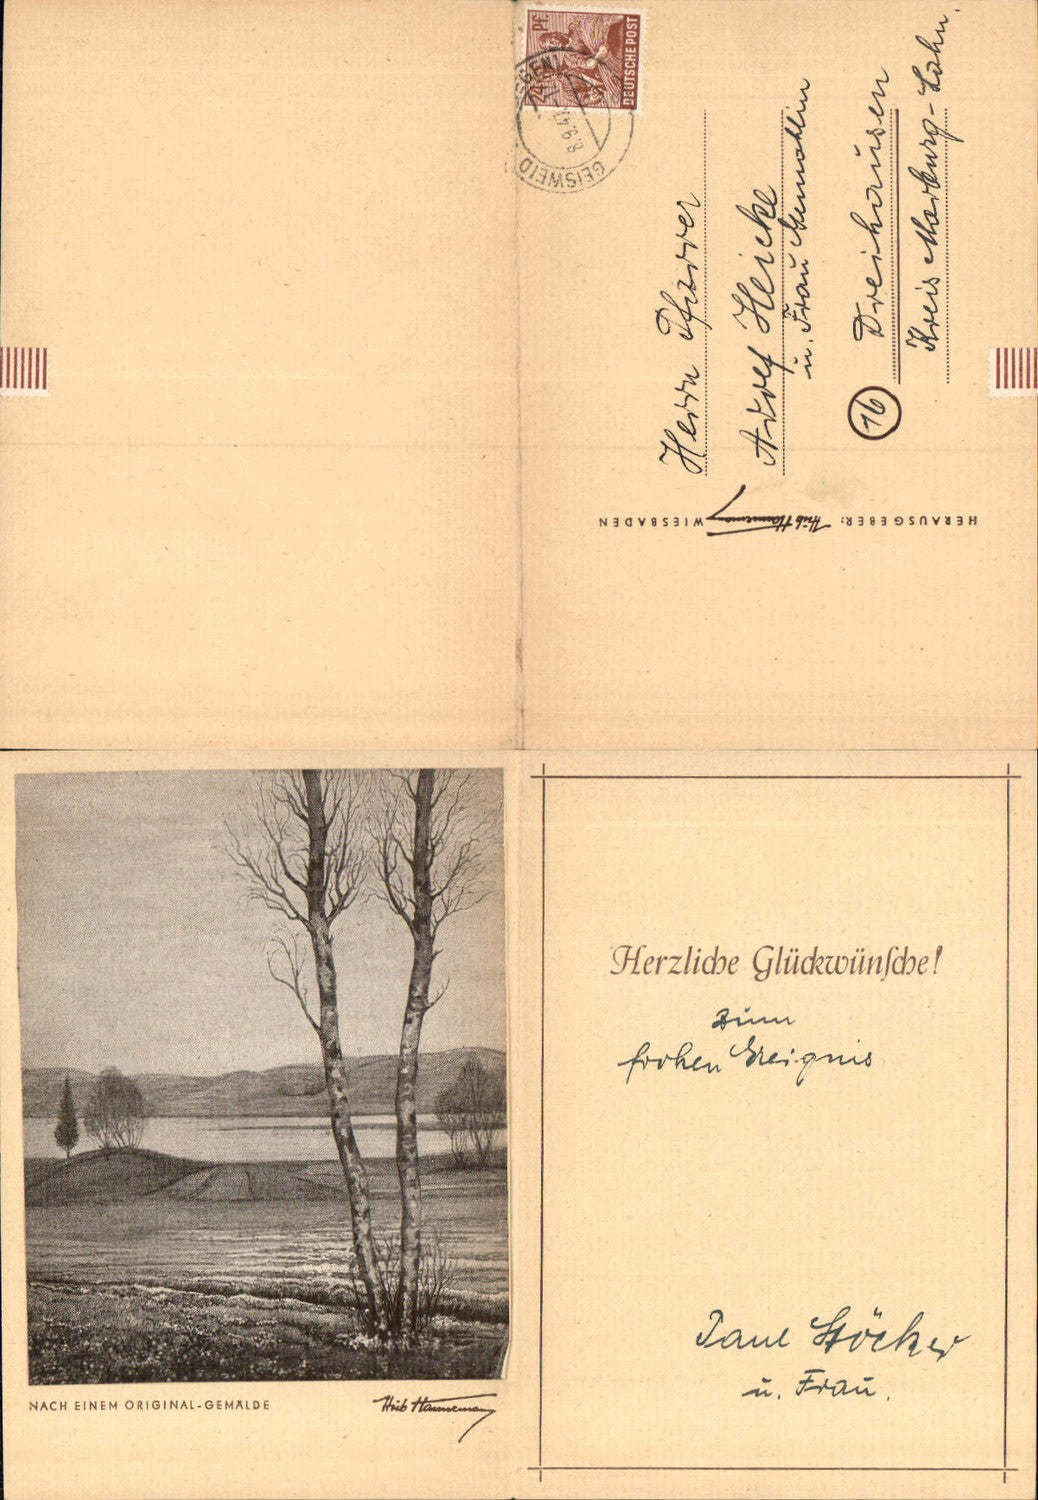 24 PF.
DEUTSCHE POST
GEISWEID
8.9.47
Herrn Pfarrer
Adolf Heicke
u. Frau Gemahlin
16
Dreihausen
Kreis Marburg-Lahn.
HERAUSGEBER: Hub Hannemann WIESBADEN
NACH EINEM ORIGINAL-GEMÄLDE
Hub Hannemann
Herzliche Glückwünsche!
zum
frohen Ereignis
Paul Stöcker
u. Frau.